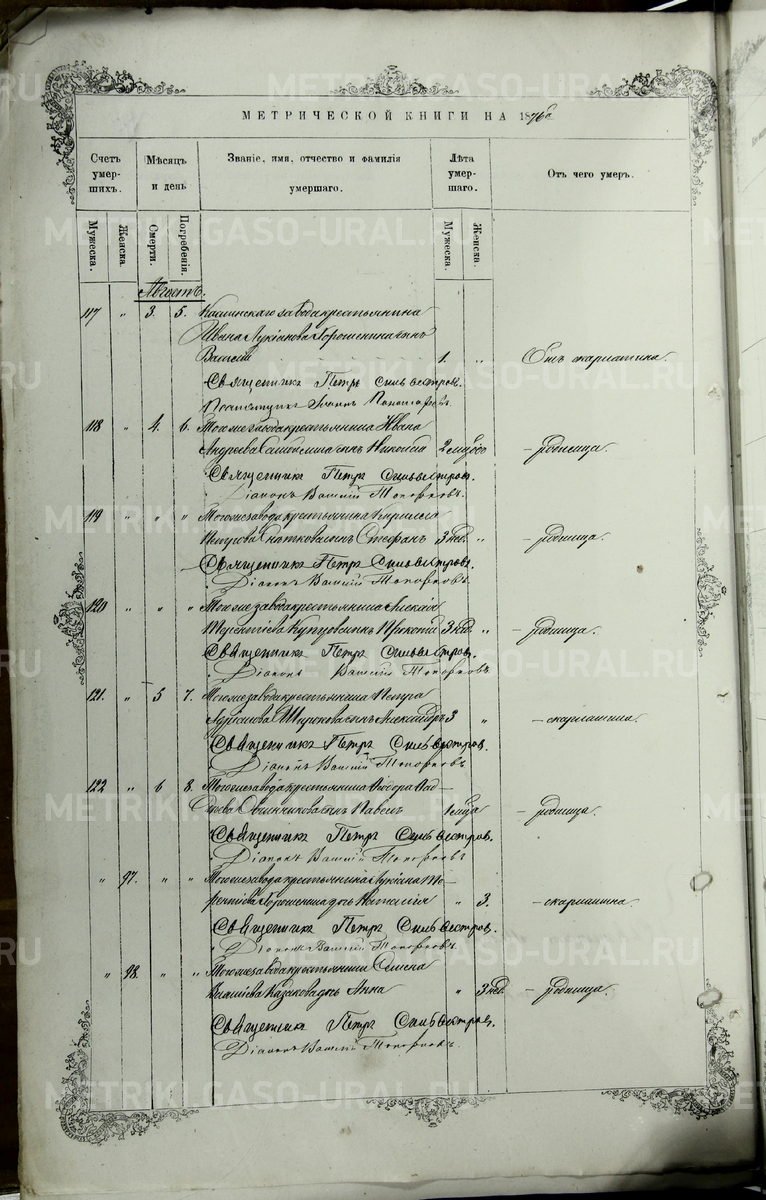 МЕТРИЧЕСКОЙ КНИГИ НА 1876
Счетъ умер- шихъ. Мѣсяцъ и день Званіе, имя, отчество и фамилія умершаго. Лѣта умер- шаго. Отъ чего умеръ.
Мужеска. Женска. Смерти. Погребенія. Мужеска. Женска.
Августъ.
117 " 3. 5. завода крестьянина
Ивана Лукіанова Горошенина сынъ
Василій 1. " Отъ скарлатина.
Священникъ Петръ Сильвестровъ.
Іоаннъ Пономаревъ.
118 " 4. 6. Тогоже завода крестьянина Ивана
Андреева сынъ Николай 2 мѣс. — родимца.
Священникъ Петръ Сильвестровъ.
Діаконъ Василій Топорковъ.
119 " " " Тогоже завода крестьянина Кирилла
Петрова сынъ Стефанъ 3 нед. " — родимца.
Священникъ Петръ Сильвестровъ.
Діаконъ Василій Топорковъ.
120 " " " Тогоже завода крестьянина Алексія
Терентіева Купцова сынъ Прокопій 3 нед. " — родимца.
Священникъ Петръ Сильвестровъ.
Діаконъ Василій Топорковъ
121. " 5 7. Тогоже завода крестьянина Петра
Широкова сынъ Александръ 3 " — скарлатина.
Священникъ Петръ Сильвестровъ.
Діаконъ Василій Топорковъ
122 " 6 8. Тогоже завода крестьянина Ѳедора
Овчинникова сынъ Павелъ 1 мѣсяца " — родимца.
Священникъ Петръ Сильвестров.
Діаконъ Василій Топорковъ
" 97. " " Тогоже завода крестьянина Лукіана
Горошенина дочь Наталія " 3. — скарлатина.
Священникъ Петръ Сильвестров.
Діаконъ Василій Топорковъ.
" 98. " " Тогоже завода крестьянина Семена
Василіева Казакова дочь Анна " 3 нед. — родимца.
Священникъ Петръ Сильвестров.
Діаконъ Василій Топорковъ.
METRIKI.GASO-URAL.RU